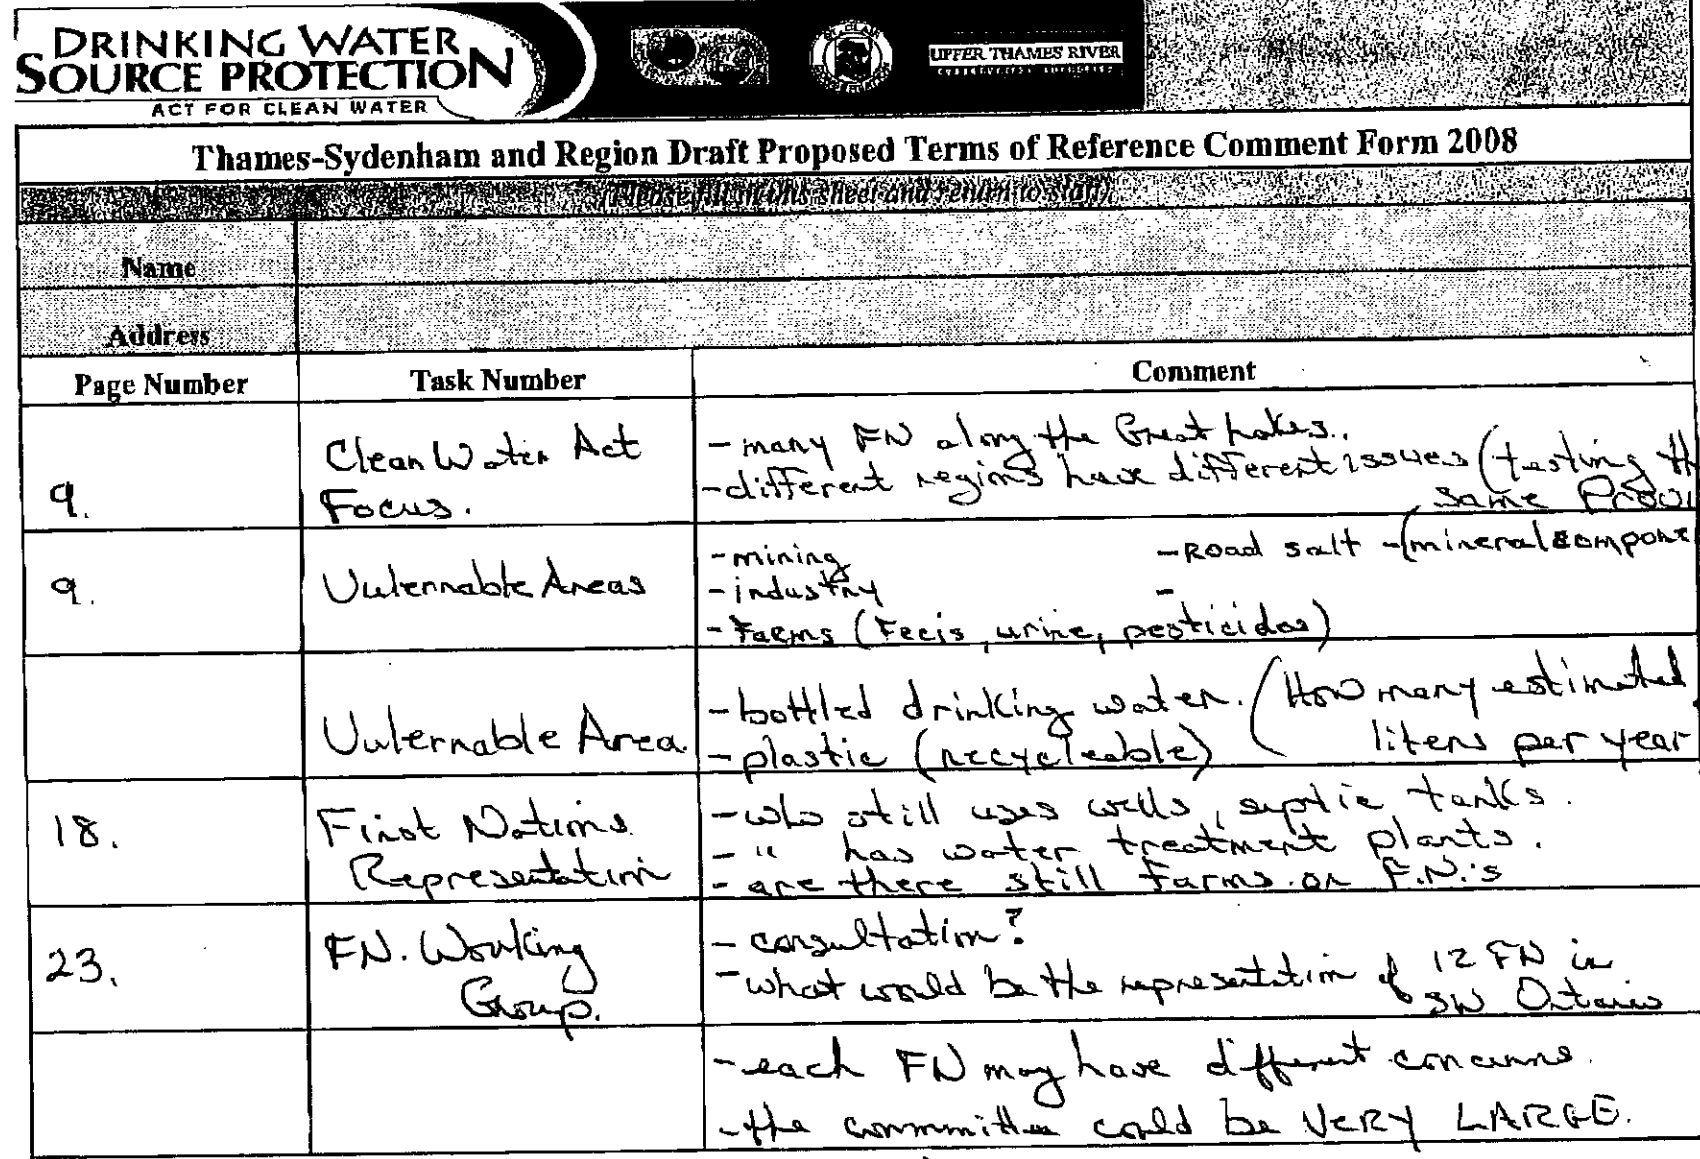 DRINKING WATER
SOURCE PROTECTION
ACT FOR CLEAN WATER
UPPER THAMES RIVER
Thames-Sydenham and Region Draft Proposed Terms of Reference Comment Form 2008
(Please fill in this sheet and return to staff)
Name
Address
Page Number Task Number Comment
9. Clean Water Act Focus.
- many FN along the Great Lakes.
- different regions have different issues (testing th
same Provi
9. Vulernable Areas
- mining - Road salt - (mineral compone
- industry -
- Farms (Fecis, urine, pesticides)
Vulernable Area.
- bottled drinking water. (How many estimated
- plastic (recycleable) liters per year
18. First Nations Representation
- who still uses wells, septic tanks.
- " has water treatment plants.
- are there still Farms on F.N.'s
23. FN. Working Group.
- consultation?
- what would be the representation of 12 FN in
SW Ontario
- each FN may have different concerns.
- the committee could be VERY LARGE.